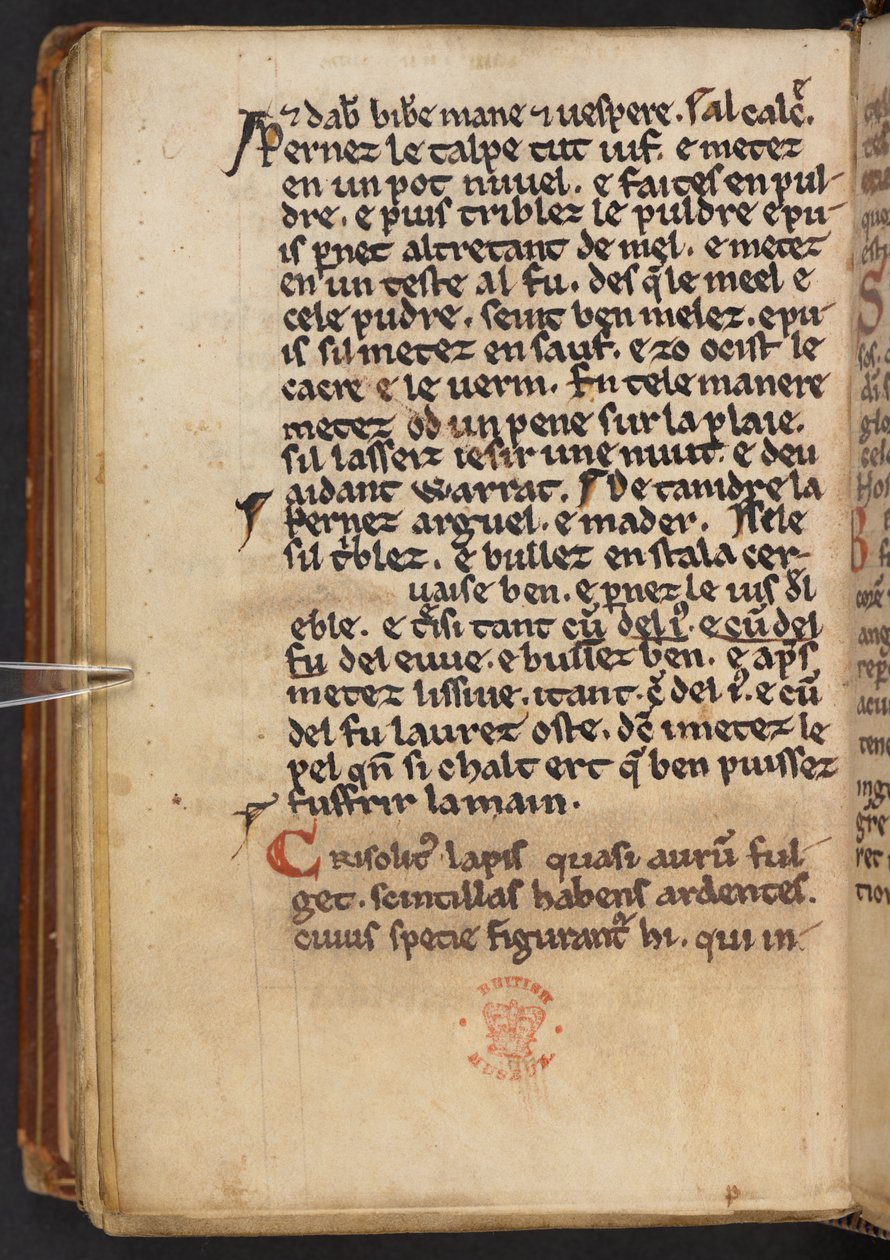 ⁊ dab̄ bib̄e mane ⁊ uespere. Al calc̄e.
Pernez le talpe tut uif. e metez
en un pot nuuel. e faites en pul-
dre. e puis triblez le puldre e pu-
is p̱net altretant de mel. e metez
en un teste al fu. des q̄ le meel e
cele pudre. seint ben melez. e pu-
is sil metez en sauf. e zo ocist le
cacre e le uerm. En tele manere
metez od un pene sur la plaie.
sil lasseiz iesir une nuit. e deu
aidant Warrat. De taindre la
Pernez arguel. e mader. pel e
sil t̄blez. e bullez en stala cer-
uaise ben. e p̱nez le ius d̄l
eble. e t̄si tant cū del i᷒. e cū del
fu del euue. e bullez ben. e ap̄s
metez lissiue. itant. c̄ del i᷒. e cū
del fu laurez oste. dc̄ i metez le
pel qn̄ si chalt ert q̄ ben puissez
suffrir la main.
CRisolit᷒ lapis quasi aurū ful-
get. scintillas habens ardentes.
cuius specie figurant᷒ hi. qui in-
BRITISH
MUSEUM